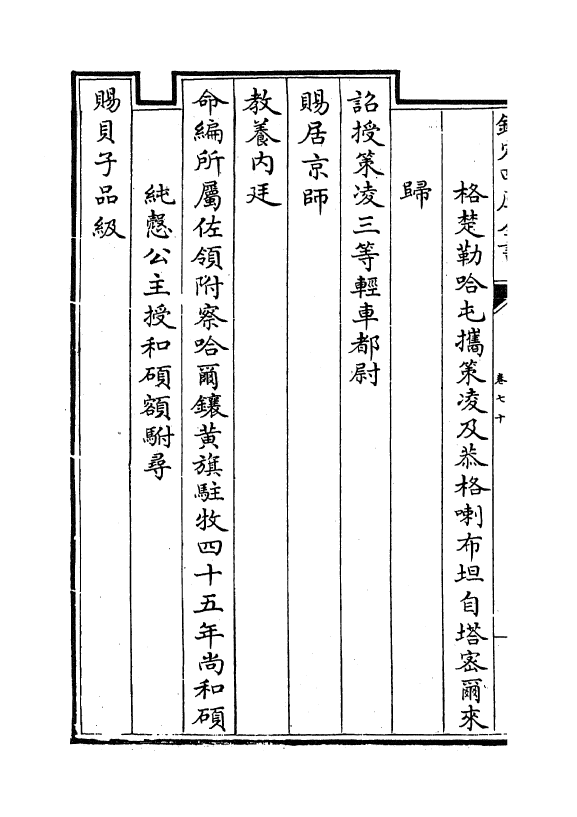 欽定四庫全書
卷七十
格楚勒哈屯攜策凌及恭格喇布坦自塔密爾來
歸
詔授策凌三等輕車都尉
賜居京師
教養内廷
命編所屬佐領附察哈爾鑲黄旗駐牧四十五年尚和碩
純慤公主授和碩額駙尋
賜貝子品級